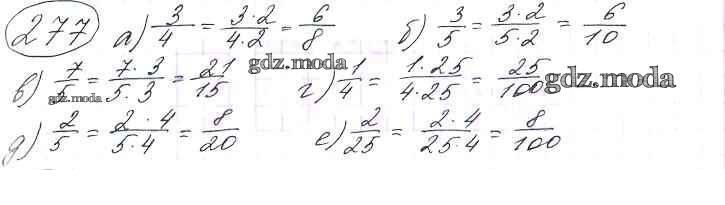 277 а) 3/4 = 3·2/4·2 = 6/8 б) 3/5 = 3·2/5·2 = 6/10
в) 7/5 = 7·3/5·3 = 21/15 gdz.moda г) 1/4 = 1·25/4·25 = 25/100 gdz.moda
gdz.moda
д) 2/5 = 2·4/5·4 = 8/20 е) 2/25 = 2·4/25·4 = 8/100